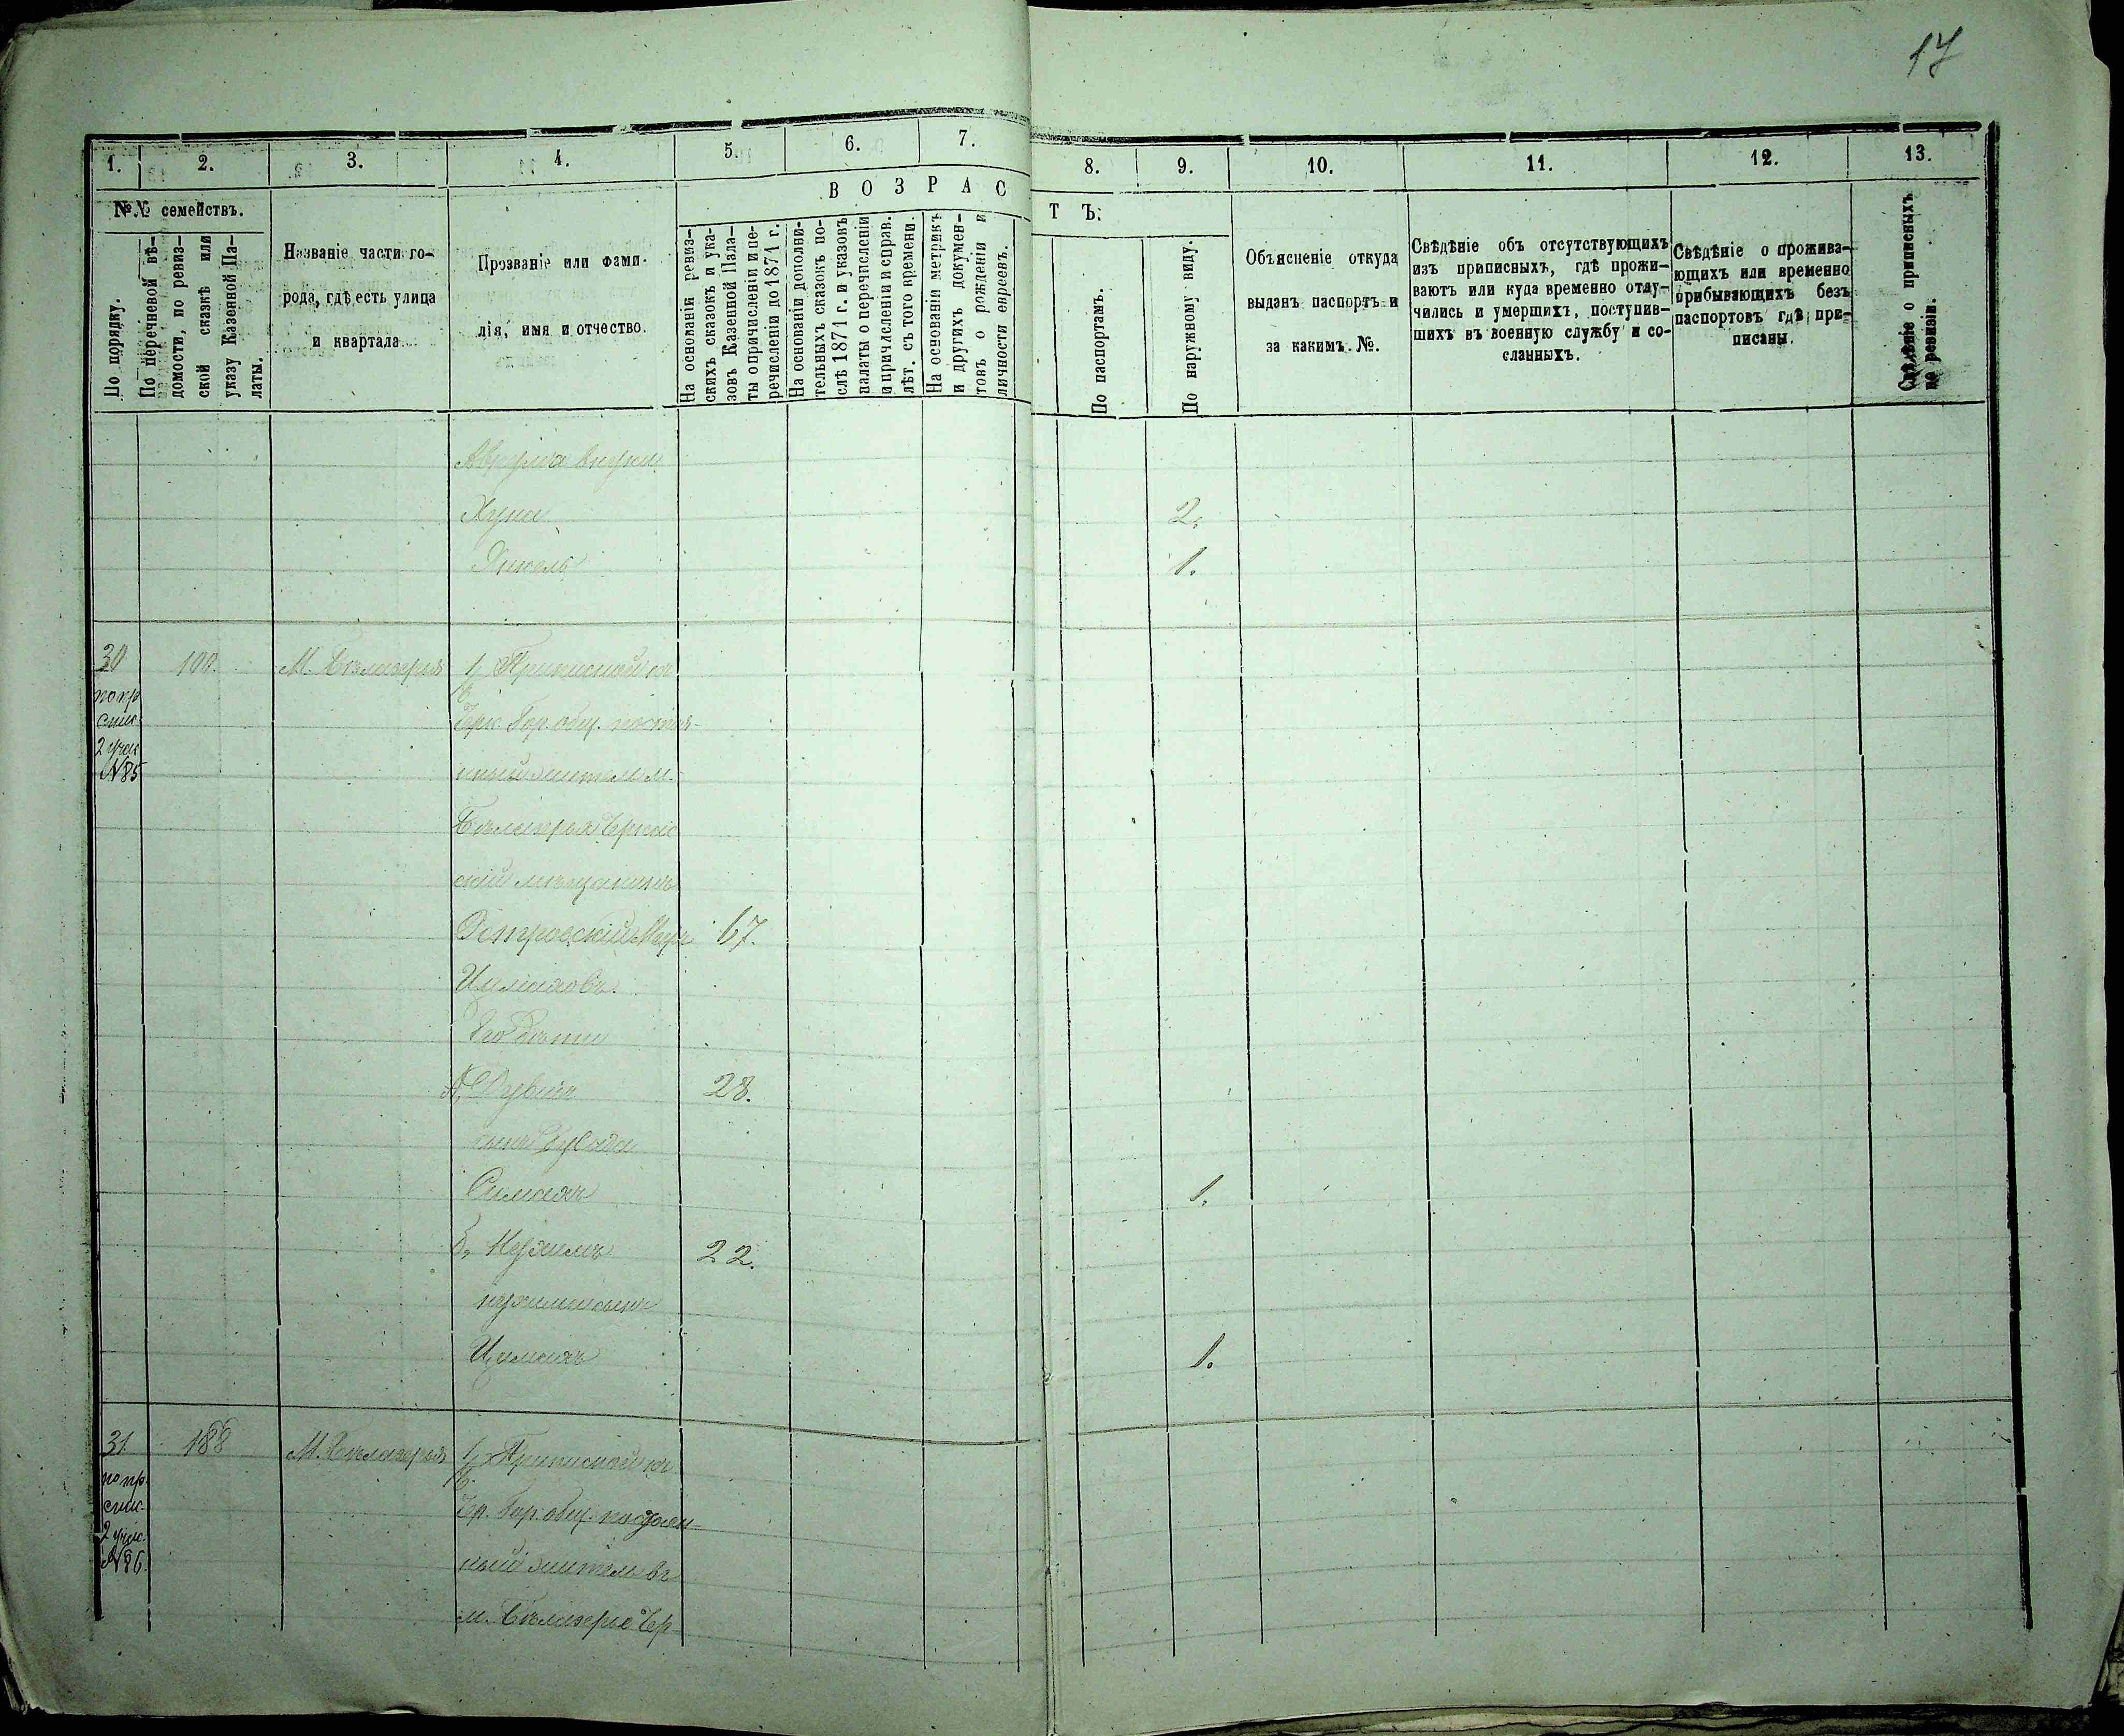 17
1. 2. 3. 4. 5. 6. 7. 8. 9. 10. 11. 12. 13.
В О З Р А С Т Ъ.
№№ семействъ.
По порядку.
По перечневой вѣ-
домости, по ревиз-
ской сказкѣ или
указу Казенной Па-
латы.
Названіе части го-
рода, гдѣ есть улица
и квартала
Прозваніе или фами-
лія, имя и отчество.
На основаніи ревиз-
скихъ сказокъ и ука-
зовъ Казенной Пала-
ты о причисленіи и пе-
речисленіи до 1871 г.
На основаніи дополни-
тельныхъ сказокъ по-
слѣ 1871 г. и указовъ
палаты о перечисленіи
и причисленіи и справ.
лѣт. съ того времени.
На основаніи метрикъ
и другихъ докумен-
товъ о рожденіи и
личности евреевъ.
По паспортамъ.
По наружному виду.
Объясненіе откуда
выданъ паспортъ и
за какимъ №.
Свѣдѣніе объ отсутствующихъ
изъ приписныхъ, гдѣ прожи-
ваютъ или куда временно отлу-
чились и умершихъ, поступив-
шихъ въ военную службу и со-
сланныхъ.
Свѣдѣніе о прожива-
ющихъ или временно
прибывающихъ безъ
паспортовъ гдѣ при-
писаны.
Свѣдѣніе о приписныхъ
по ревизіи.
внуки
Хуна 2.
1.
30 100. М. Бѣлозерья 1, Приписной къ
по пр.
спис.
2 учас.
№85
Черк. Гор. общ. постоя-
нный житель м.
Бѣлозерья Черкас
скій мѣщанинъ
Островскій 67.
Цимаховъ
Его дѣти
А, Рувинъ 28.
сынъ
Симахъ 1.
Б, Нухимъ 22.
нухима сынъ
Цимахъ 1.
31 188 М. Бѣлозерья 1, Приписной къ
по пр.
спис.
2 учас.
№86.
Чер. Гор. общ. постоян-
ный житель въ
м. Бѣлозерье Чер-